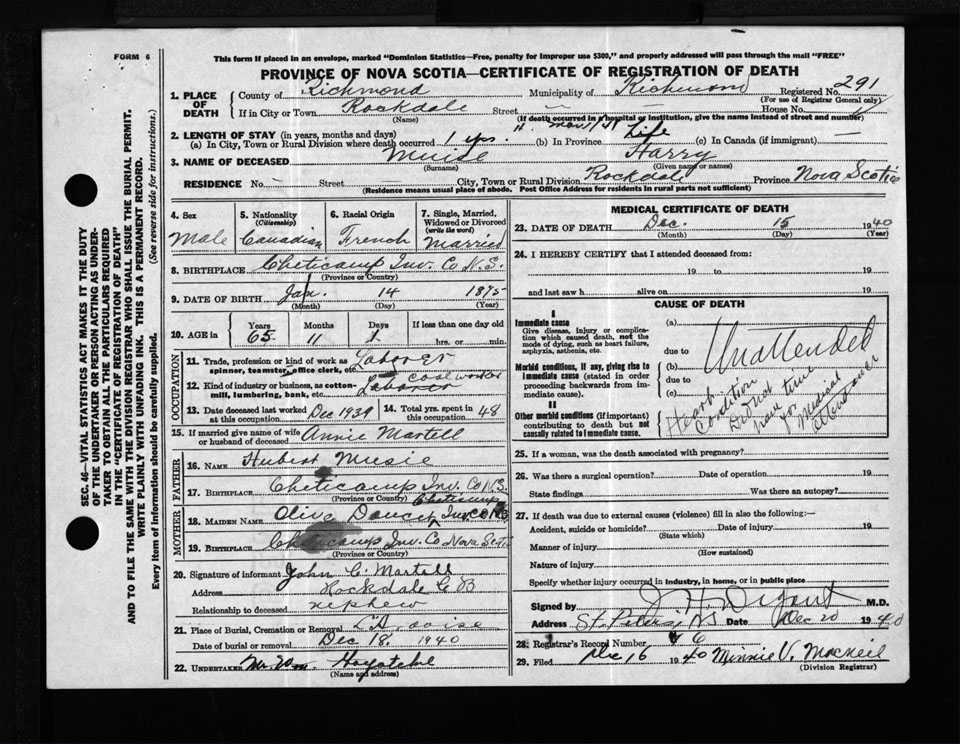 FORM 6
This form if placed in an envelope, marked "Dominion Statistics—Free, penalty for improper use $300," and properly addressed will pass through the mail "FREE"
PROVINCE OF NOVA SCOTIA—CERTIFICATE OF REGISTRATION OF DEATH
SEC. 46—VITAL STATISTICS ACT MAKES IT THE DUTY
OF THE UNDERTAKER OR PERSON ACTING AS UNDER-
TAKER TO OBTAIN ALL THE PARTICULARS REQUIRED
IN THE "CERTIFICATE OF REGISTRATION OF DEATH"
AND TO FILE THE SAME WITH THE DIVISION REGISTRAR WHO SHALL ISSUE THE BURIAL PERMIT.
WRITE PLAINLY WITH UNFADING INK. THIS IS A PERMANENT RECORD.
Every item of information should be carefully supplied. (See reverse side for instructions.)
1. PLACE OF DEATH
County of Richmond Municipality of Richmond Registered No. 291
(For use of Registrar General only)
If in City or Town Rockdale Street — House No.
(Name) (If death occurred in a hospital or institution, give the name instead of street and number)
2. LENGTH OF STAY (in years, months and days)
(a) In City, Town or Rural Division where death occurred 1 yrs. (b) In Province Life (c) In Canada (if immigrant) —
3. NAME OF DECEASED Muise Harry
(Surname) (Given name or names)
RESIDENCE No — Street City, Town or Rural Division Rockdale Province Nova Scotia
(Residence means usual place of abode. Post Office Address for residents in rural parts not sufficient)
4. Sex Male
5. Nationality (Citizenship) Canadian
6. Racial Origin French
7. Single, Married, Widowed or Divorced (write the word) Married
8. BIRTHPLACE Cheticamp Inv. Co N.S.
(Province or Country)
9. DATE OF BIRTH Jan. 14 1875
(Month) (Day) (Year)
10. AGE in Years 65 Months 11 Days 1 If less than one day old hrs. or min.
OCCUPATION
11. Trade, profession or kind of work as spinner, teamster, office clerk, etc. Laborer
12. Kind of industry or business, as cotton-mill, lumbering, bank, etc. Coal worker
13. Date deceased last worked at this occupation Dec 1939
14. Total yrs. spent in this occupation 48
15. If married give name of wife or husband of deceased Annie Martell
FATHER
16. Name Hubert Musie
17. Birthplace Cheticamp Inv. Co N.S.
(Province or Country)
MOTHER
18. Maiden Name Olive Doucet Cheticamp Inv. Co N.S
19. Birthplace Cheticamp Inv. Co Nova Scotia
(Province or Country)
20. Signature of informant John C. Martell
Address Rockdale C B
Relationship to deceased nephew
21. Place of Burial, Cremation or Removal
Date of burial or removal Dec 18, 1940
22. UNDERTAKER Mr. Wm.
(Name and address)
MEDICAL CERTIFICATE OF DEATH
23. DATE OF DEATH Dec. 15 1940
(Month) (Day) (Year)
24. I HEREBY CERTIFY that I attended deceased from:
19 to 19
and last saw h alive on 19
CAUSE OF DEATH
I
Immediate cause
Give disease, injury or complication which caused death, not the mode of dying, such as heart failure, asphyxia, asthenia, etc.
Morbid conditions, if any, giving rise to immediate cause (stated in order proceeding backwards from immediate cause).
II
Other morbid conditions (if important) contributing to death but not causally related to immediate cause.
(a)
due to
(b)
due to
(c)
Unattended
Heart Condition
Did not have time for Medical attendance
25. If a woman, was the death associated with pregnancy?
26. Was there a surgical operation? Date of operation 19
State findings Was there an autopsy?
27. If death was due to external causes (violence) fill in also the following:—
Accident, suicide or homicide? Date of injury 19
(State which)
Manner of injury
(How sustained)
Nature of injury
Specify whether injury occurred in industry, in home, or in public place
Signed by M.D.
Address St. Peters, NS Date Dec 20 1940
28. Registrar's Record Number 6
29. Filed Dec 16 1940 Minnie V. MacNeil
(Division Registrar)